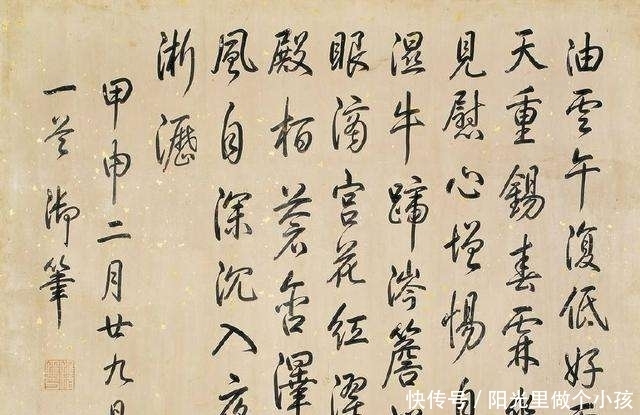 油雲午復低好
天重錫春霖
見慰心增惕自
濕牛蹄涔簷
眼滴宮花紅濯
殿柏蒼含澤
風自深沉入夜
淅瀝
甲申二月廿九日
一首御筆
快传号/阳光里做个小孩